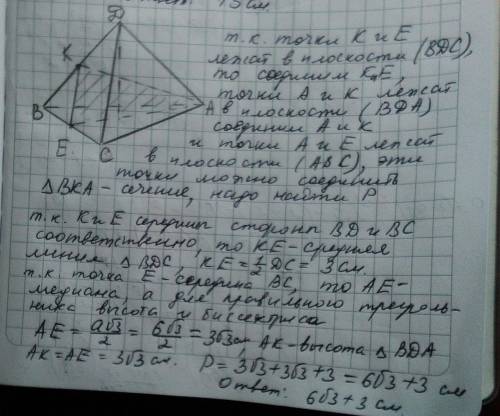 15 см.
D
K
B
A
E
C
т.к. точки K и E
лежат в плоскости (BDC),
то соединим K и E,
точки A и K лежат
в плоскости (BDA)
соединим A и K
и точки A и E лежат
в плоскости (ABC), эти
точки можно соединить
△BKA - сечение, надо найти P
т.к. K и E середины стороны BD и BC
соответственно, то KE - средняя
линия △BDC, KE = 1/2 DC = 3 см.
т.к. точка E - середина BC, то AE -
медиана, а для правильного треуголь-
ника высота и биссектриса
AE = a√3/2 = 6√3/2 = 3√3 см, AK - высота △BDA
AK = AE = 3√3 см. P = 3√3 + 3√3 + 3 = 6√3 + 3 см
Ответ: 6√3 + 3 см